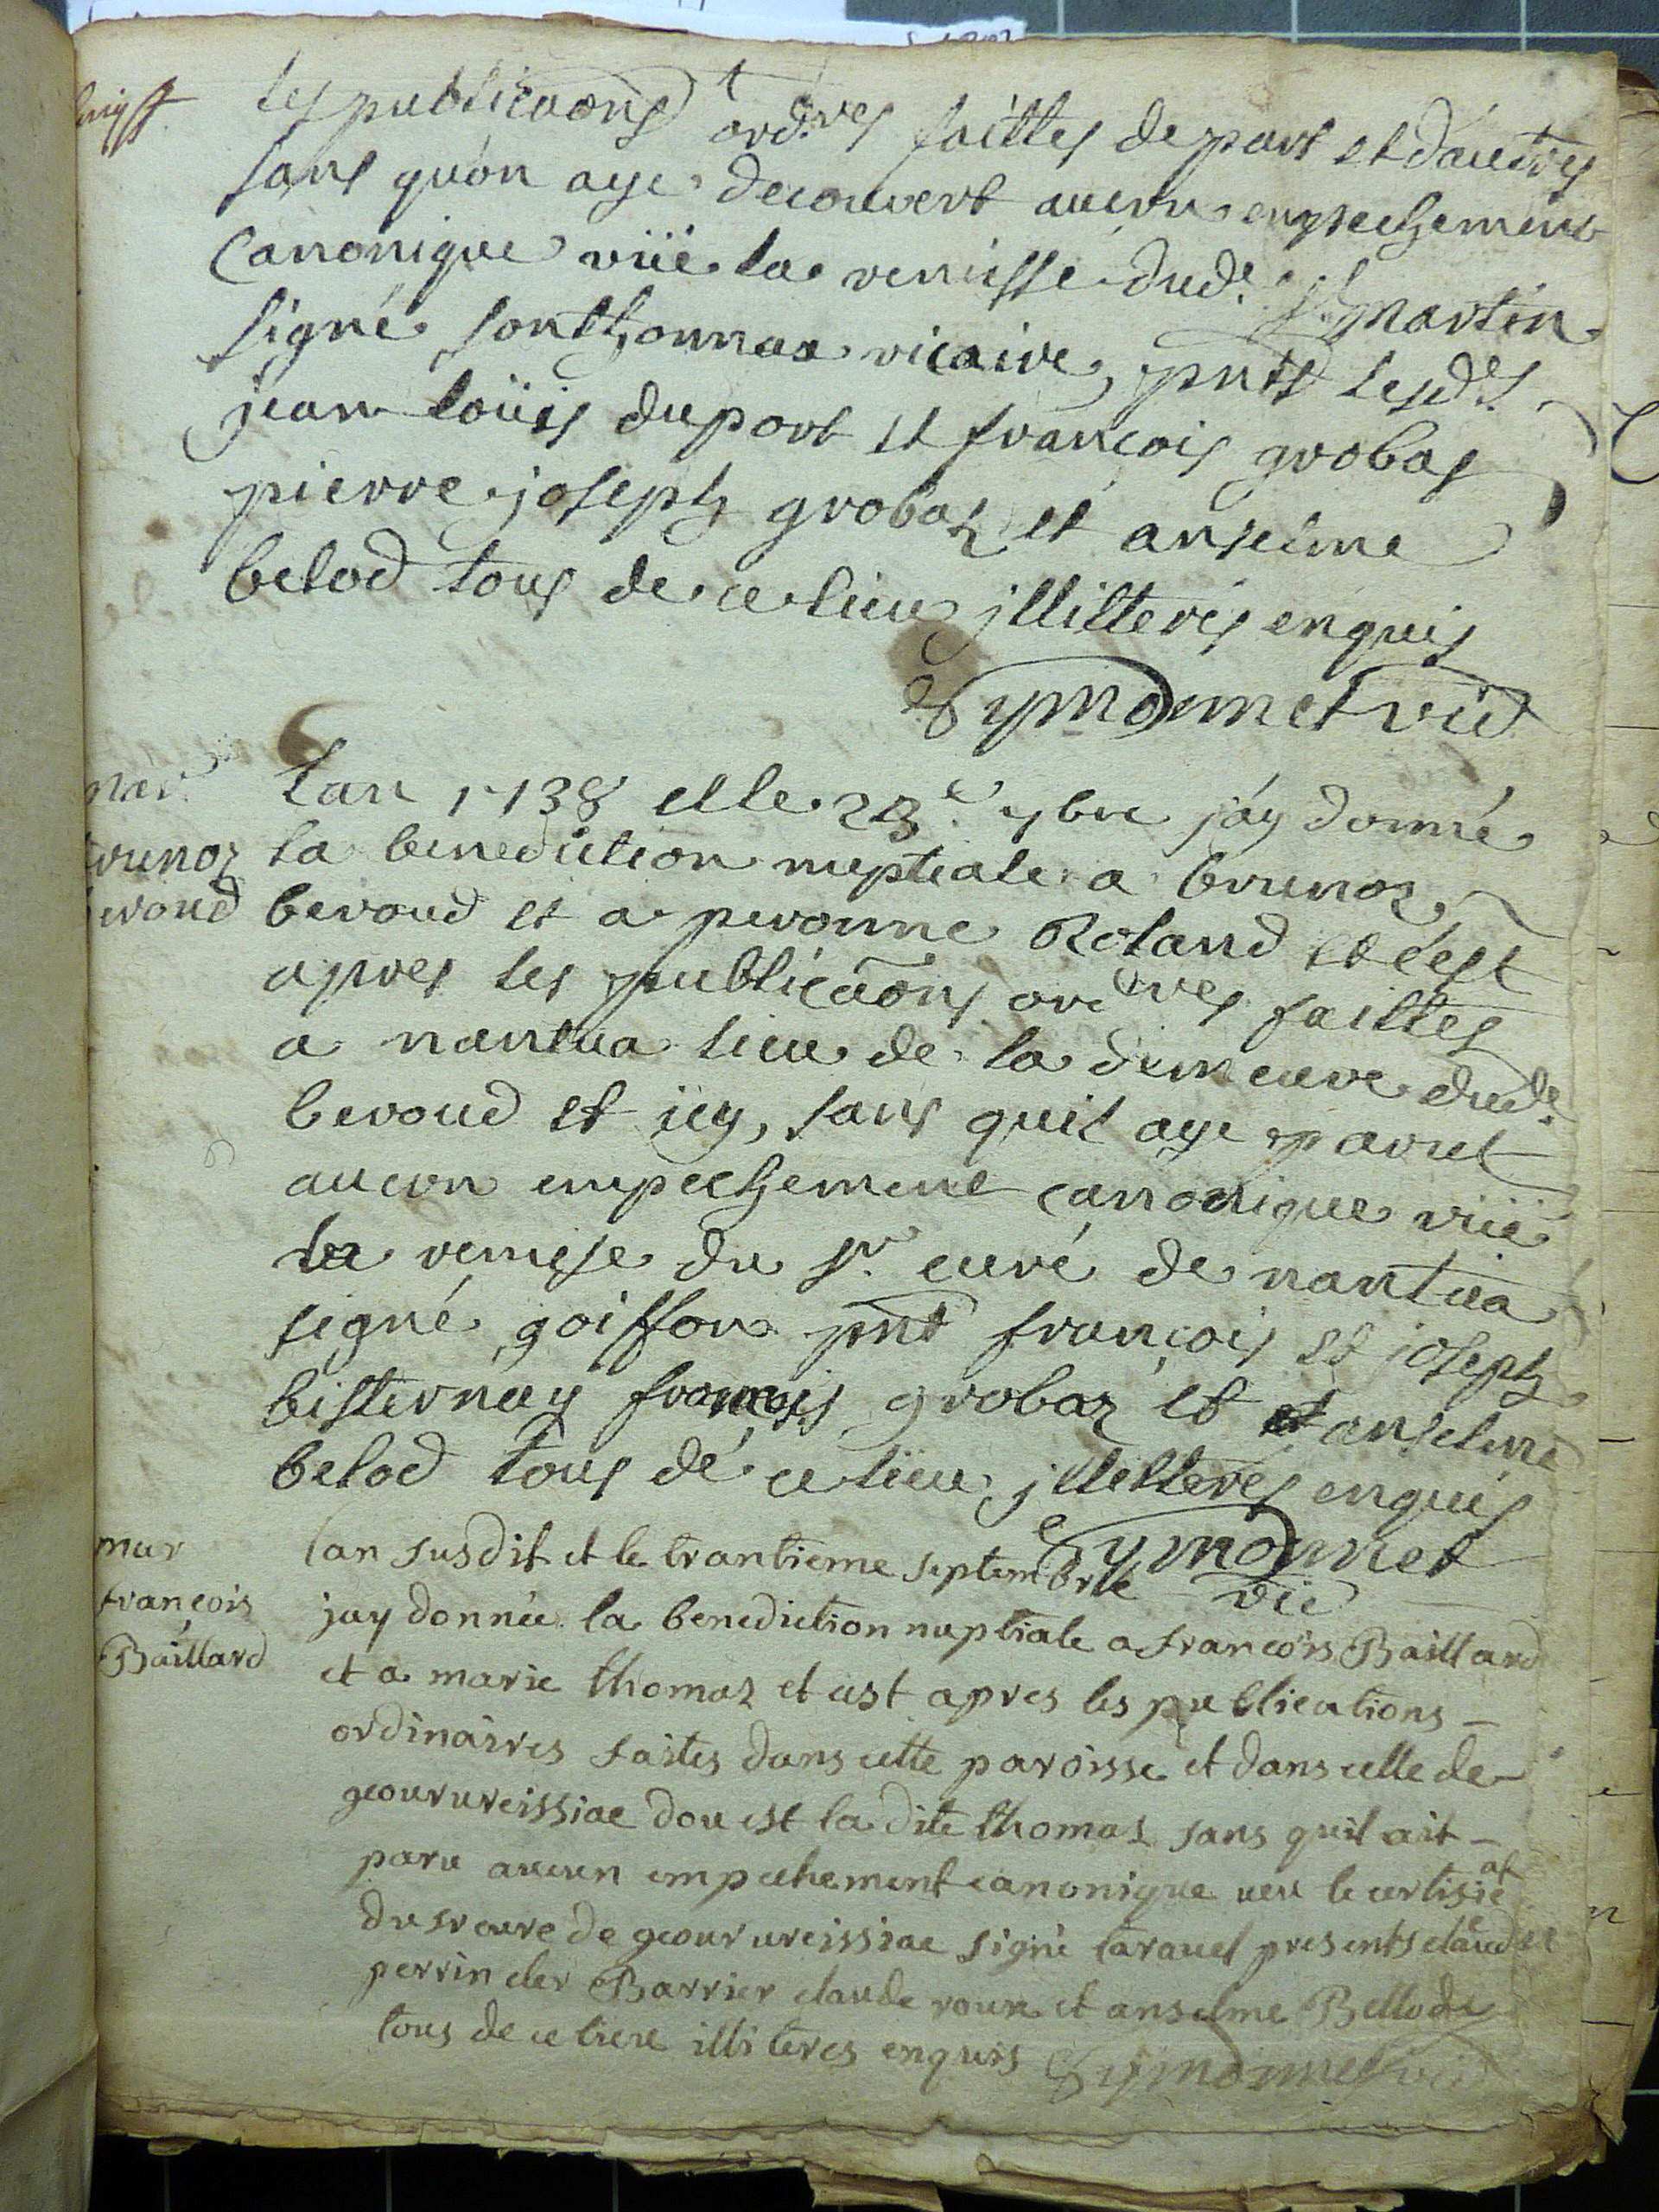 les publicãons ord.res faittes de part et d'autres
sans qu'on aye decouvert aucun empechement
Canonique vüe la remisse dud.e Sr Martin
signé sonthonnax vicaire, pnts lesd.s
jean loüis duport et francois grobas
pierre joseph grobaz et anselme
belod tous de ce lieu jllitterés enquis
Symonnet vic
mar.
brunoz
beroud
Lan 1738 et le 23.e 7bre j'ay donné
la benediction nuptiale a brunoz
beroud et a peronne Roland et c'est
apres les publicãons ord.res faittes
a nantua lieu de la demeure dud.e
beroud et icy, sans quil aye parut
aucun empechement canonique vüe
la remise du sr. curé de nantua
signé goiffon pnt françois et joseph
bisternay francois grobaz et anselme
belod tous de ce lieu jllitterés enquis
Symonnet
vic
mar
françois
Baillard
lan susdit et le trantieme septembre
jay donnée la benediction nuptiale a francois Baillard
et a marie thomaz et cest apres les publications
ordinaires faites dans cette paroisse et dans celle de
geovrureissiac dou est la dite thomaz sans quil ait
paru aucun empechement canonique veu le certificat
du sr cure de geovrureissiac signé tavauel presents claude
perrin cler Barrier claude roux et anselme Bellod
tous de ce lieu illiteres enquis Symonnet vic